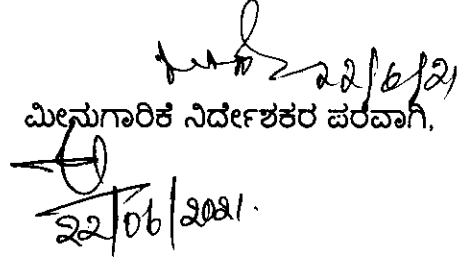 22/6/21
ಮೀನುಗಾರಿಕೆ ನಿರ್ದೇಶಕರ ಪರವಾಗಿ,
22/06/2021.